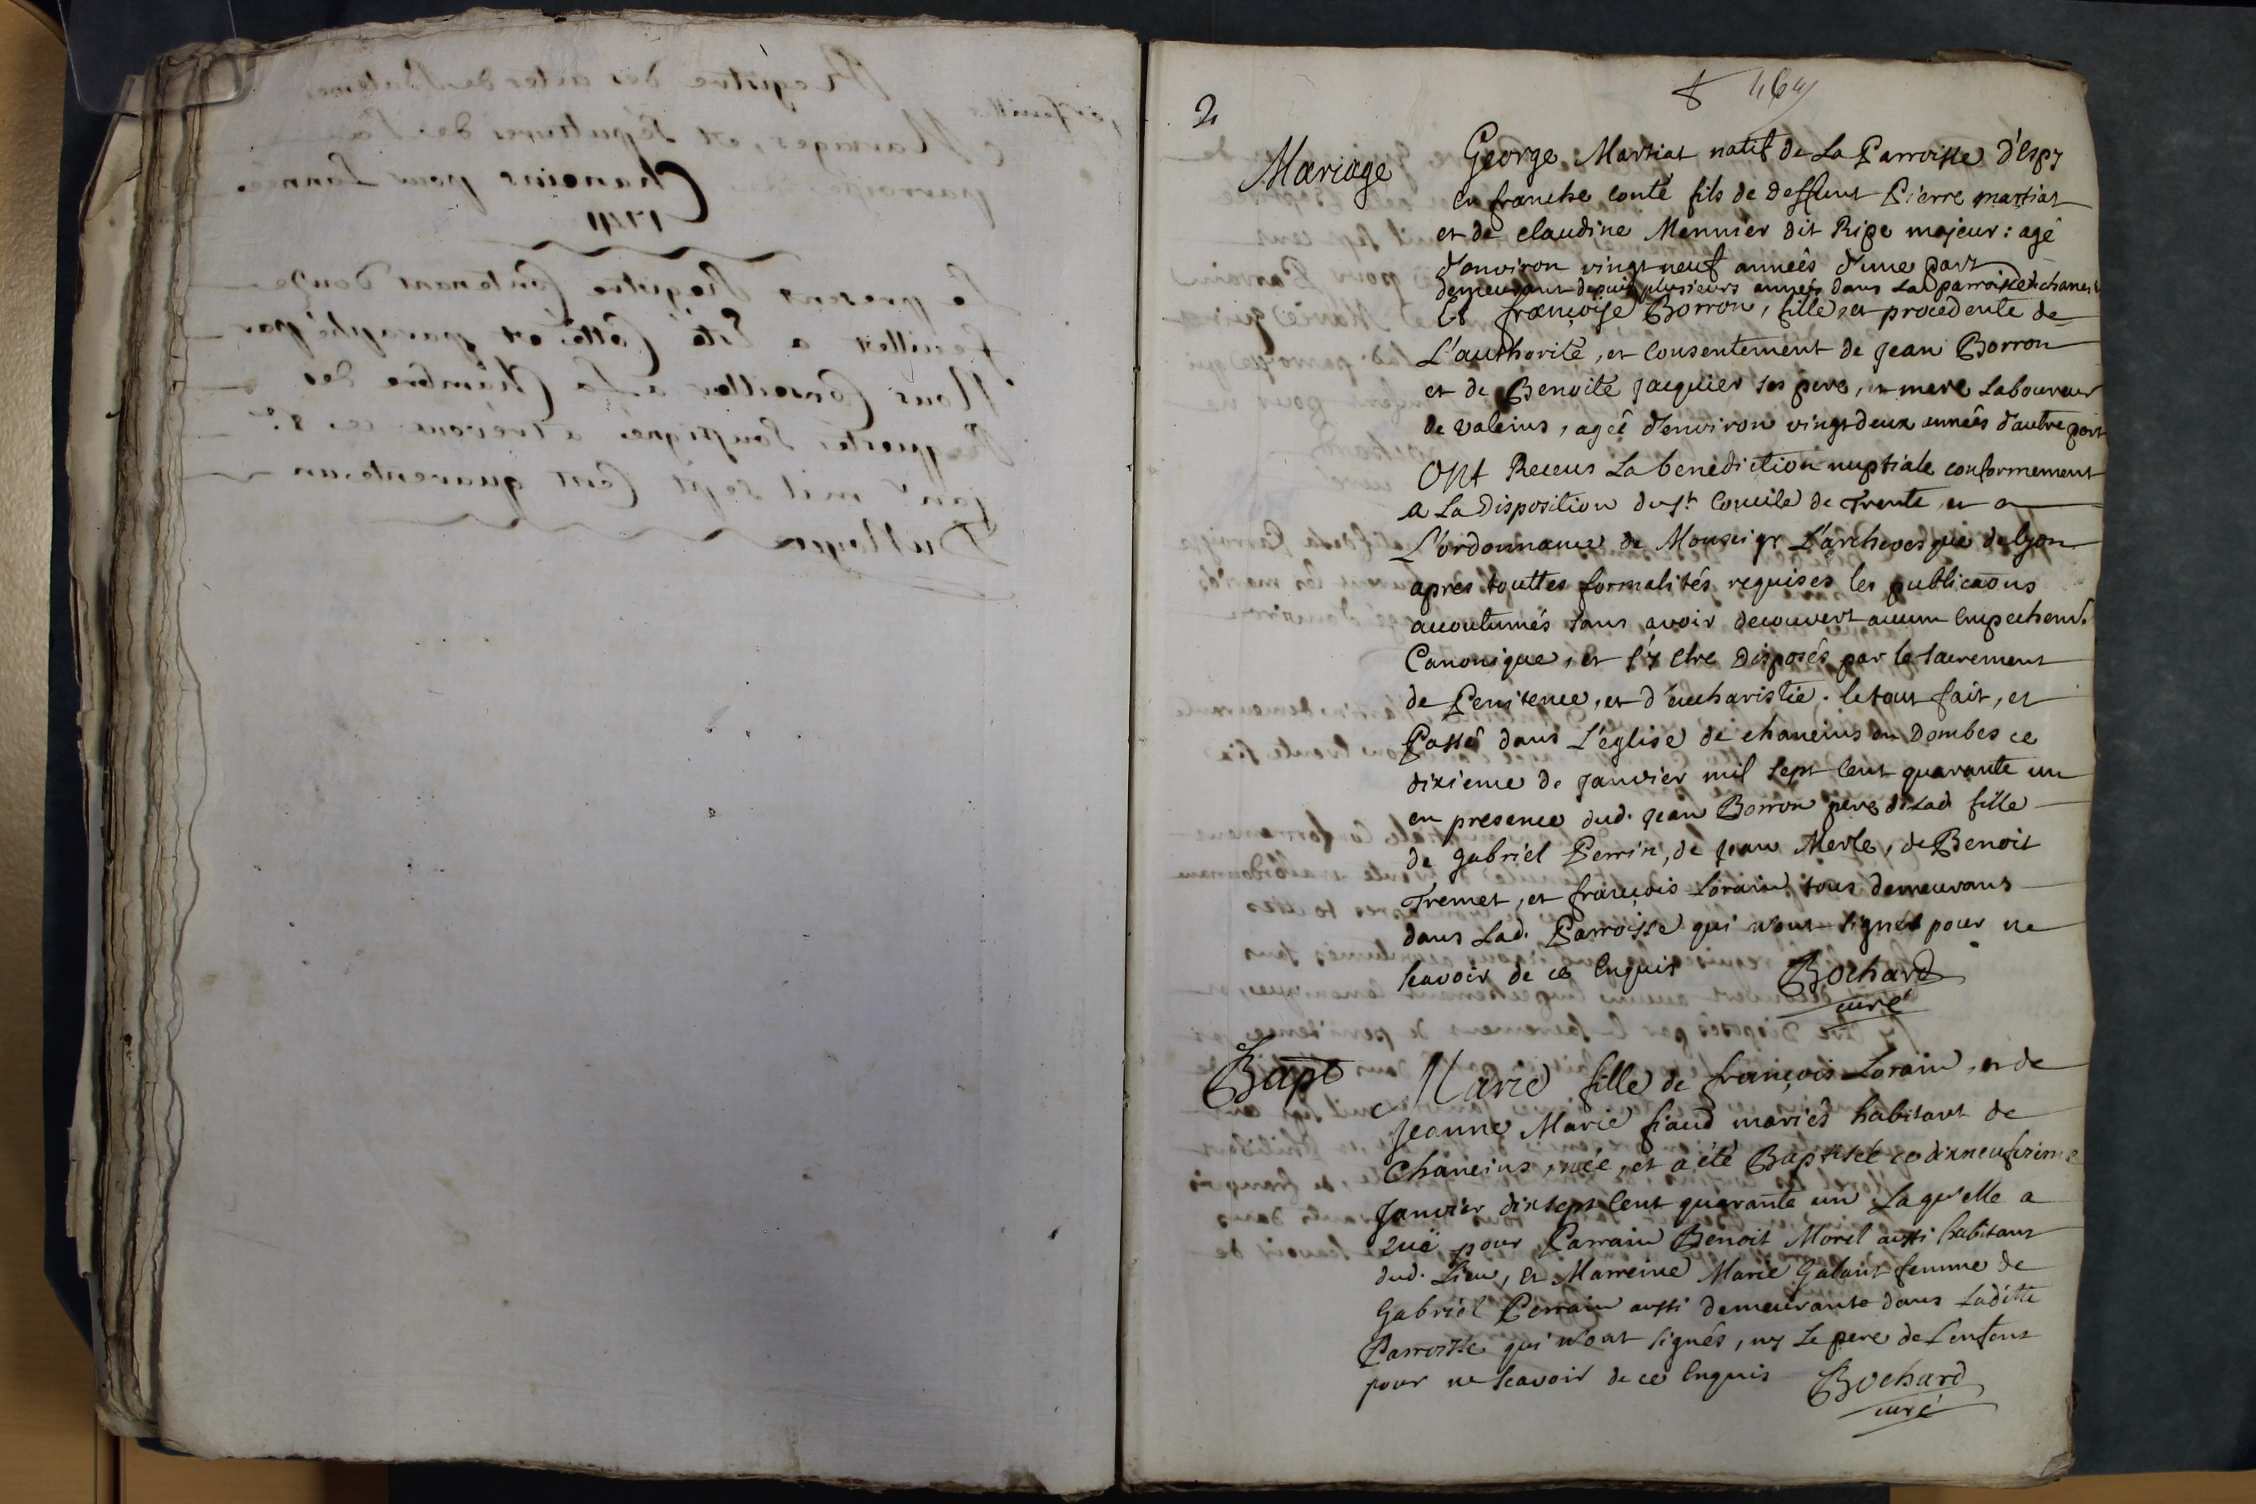 2
Mariage
George Martiat natif de La Parroisse d'Espy
en franche conté fils de deffunt Pierre martiat
et de claudine Mennier dit Ripe majeur : agé
d'anviron vingt neuf anneés d'une part
demeurant depuis plusieurs anneés dans La parroisse de chaneins
et françoise Borron, fille, et procedente de
L'authorité, et Consentement de Jean Borron
et de Benoite Jacquier ses pere, et mere Laboureur
de valeins, ageé d'environ vingt deux anneés d'autre part
ONt Receus La benediction nuptiale conformement
a La Disposition du st. Concile de Trente et a
L'ordonnance de Monseigr L'archevesque de lyon
apres touttes formalités requises les publicaons
accoutumés sans avoir decouvert aucun Empechemt.
Canonique, et s'y etre Disposés par le sacrement
de Penitence, et d'eucharistie. le tout fait, et
Passé dans L'église de chaneins en Dombes ce
dixieme de Janvier mil sept cent quarante un
en presence dud. Jean Borron pere de Lad. fille
de gabriel Perrin, de Jean Merle, de Benoit
Tremet, et françois Lorain tous demeurans
dans Lad. Parroisse qui n'ont signés pour ne
scavoir de ce Enquis Bochard
curé
Bapt
Marie fille de françois Lorain, et de
Jeanne Marie fiaud mariés habitant de
Chaneins, née, et a été Baptiseé ce dixneufvieme
Janvier dixsept Cent quarante un La qu'elle a
eue pour Parrain Benoit Morel aussi habitant
dud. Lieu, et Marreine Marie Galant femme de
Gabriel Perrain aussi demeurante dans Laditte
Parroisse qui n'ont signés, ny Le pere de L'enfent
pour ne scavoir de ce Enquis Bochard
curé